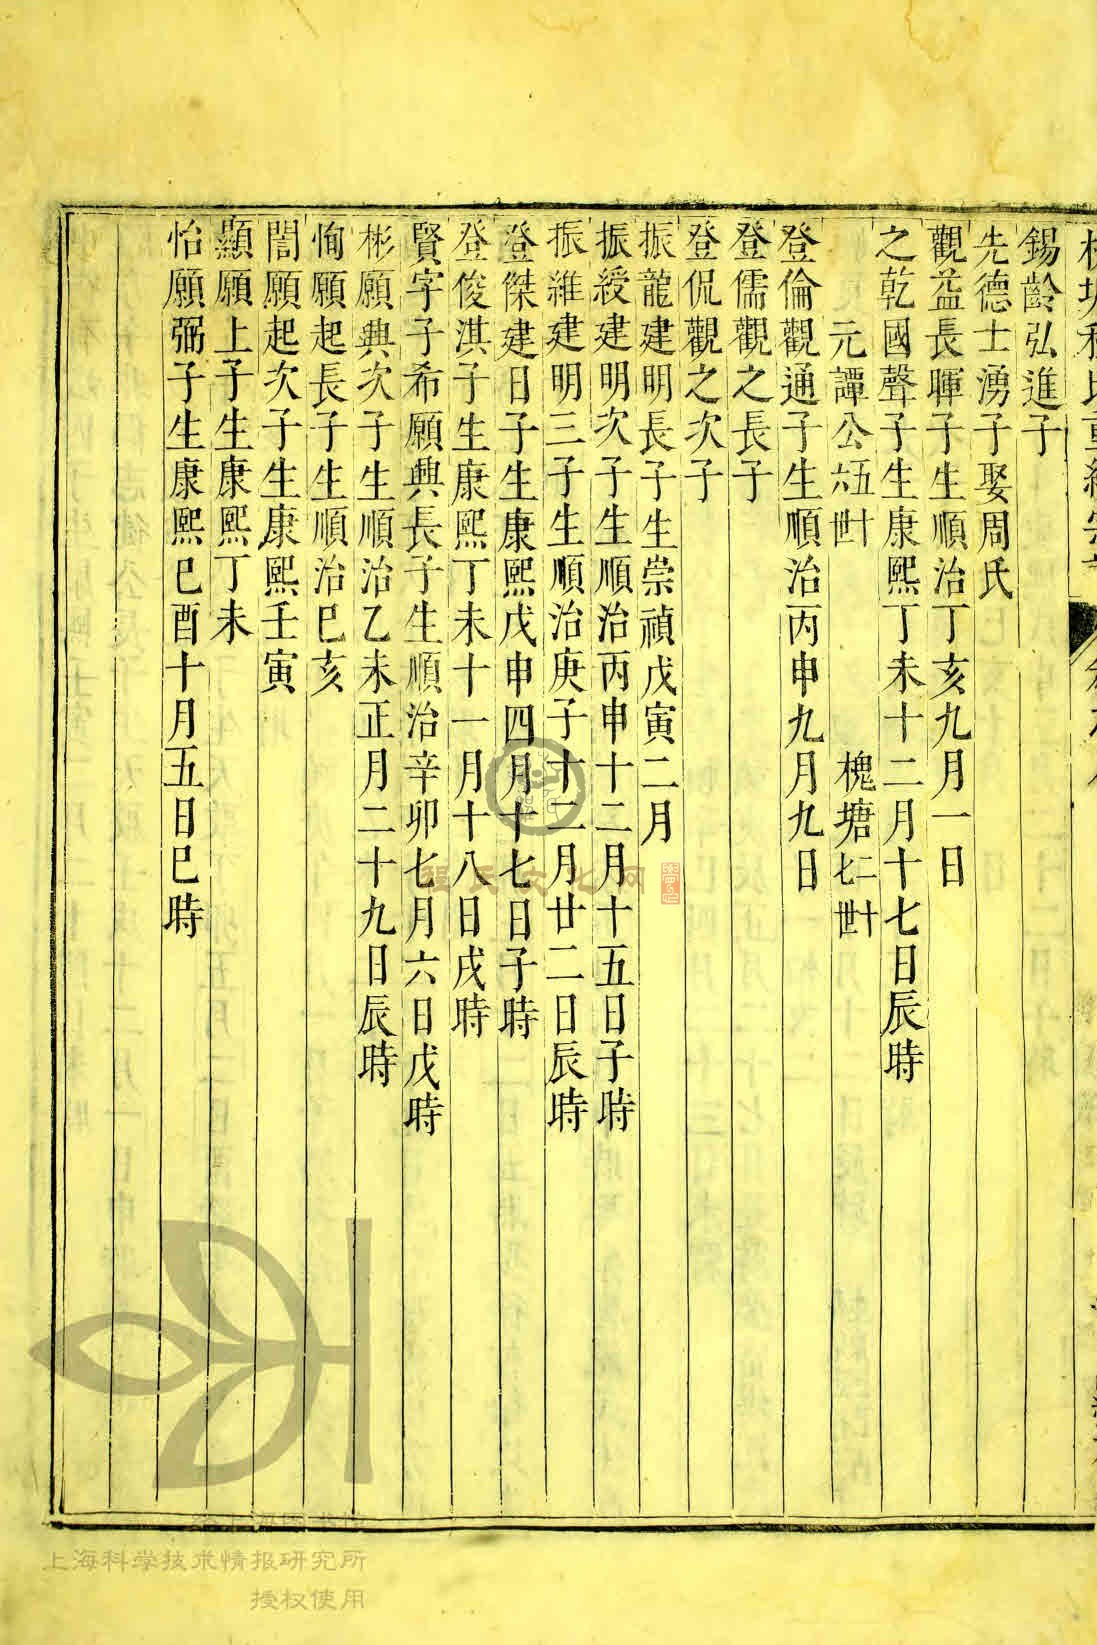 錫齡弘進子
先德士湧子娶周氏
觀益長暉子生順治丁亥九月一日
之乾國聲子生康熙丁未十二月十七日辰時
元譚公五十六世 槐塘二十七世
登倫觀通子生順治丙申九月九日
登儒觀之長子
登侃觀之次子
振龍建明長子生崇禎戊寅二月
振綬建明次子生順治丙申十二月十五日子時
振維建明三子生順治庚子十二月廿二日辰時
登傑建日子生康熙戊申四月十七日子時
登俊淇子生康熙丁未十一月十八日戌時
賢字子希願興長子生順治辛卯七月六日戊時
彬願興次子生順治乙未正月二十九日辰時
恂願起長子生順治巳亥
誾願起次子生康熙壬寅
顯願上子生康熙丁未
怡願弼子生康熙巳酉十月五日巳時
程氏文化网
上海科学技术情报研究所
授权使用